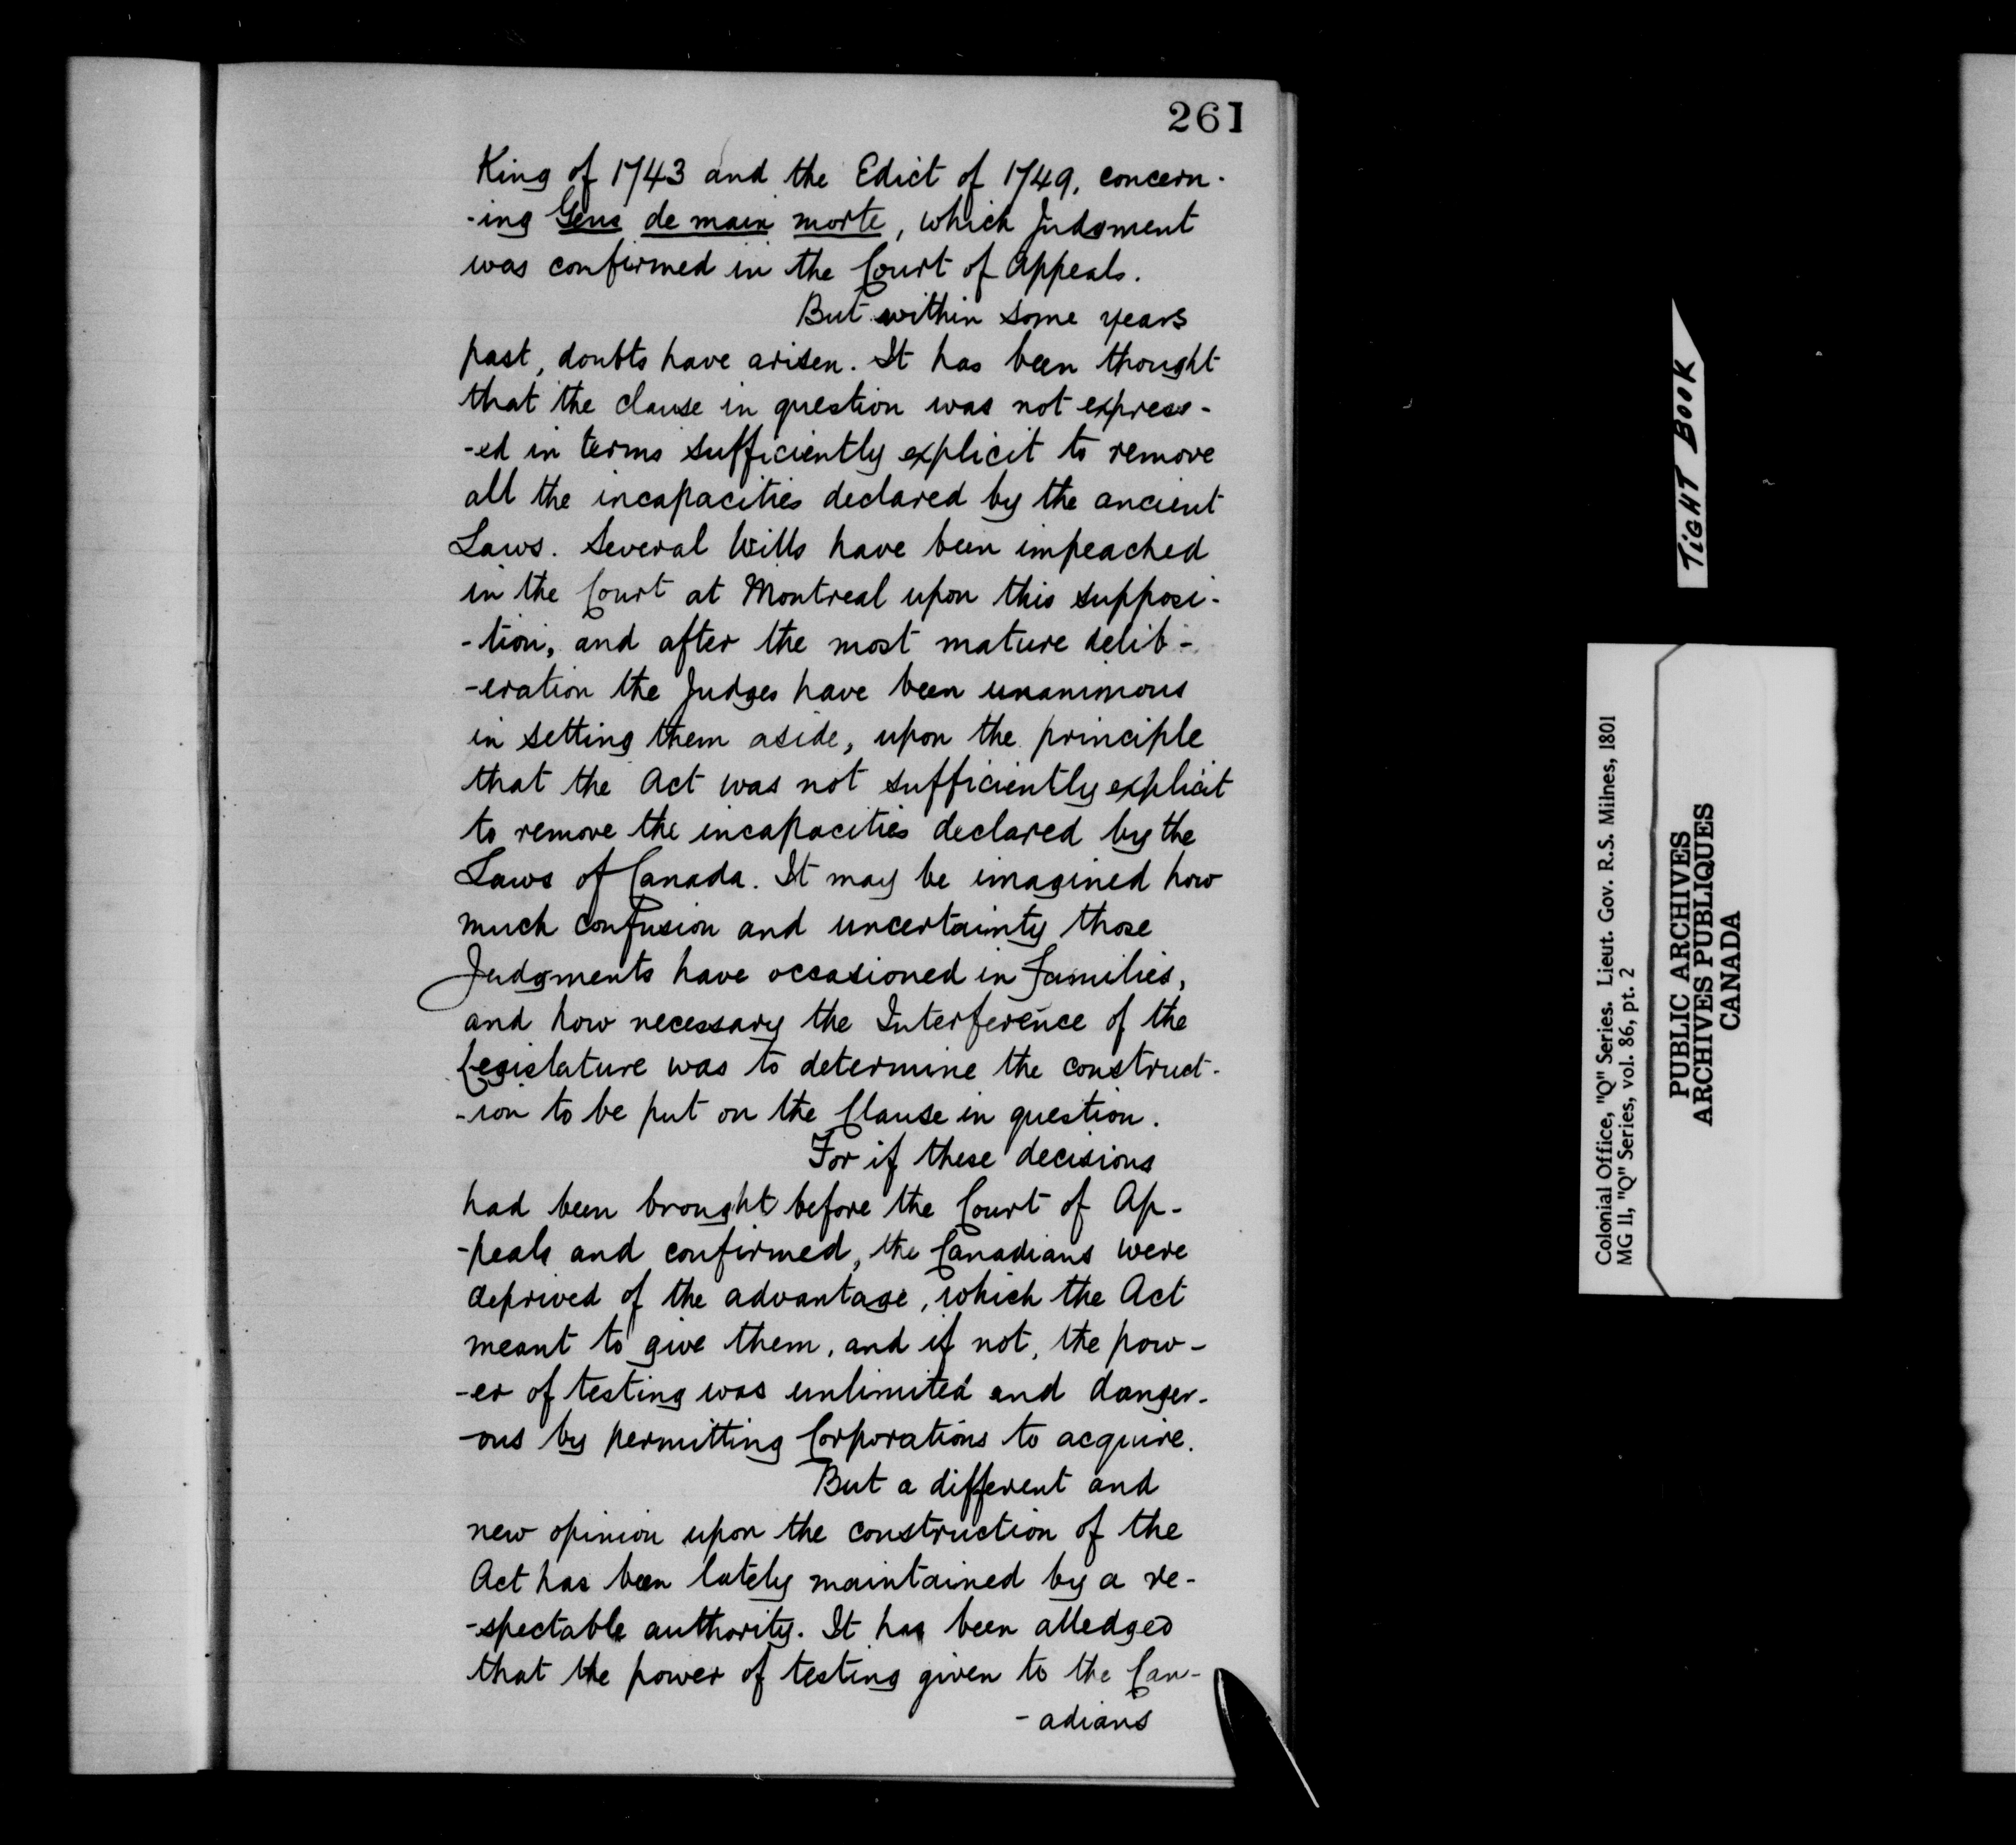 261
King of 1743 and the Edict of 1749, concern-
-ing Gens de main morte, which Judgment
was confirmed in the Court of Appeals.
But within some years
past, doubts have arisen. It has been thought
that the clause in question was not express-
-ed in terms sufficiently explicit to remove
all the incapacities declared by the ancient
Laws. Several Wills have been impeached
in the Court at Montreal upon this supposi-
-tion, and after the most mature delib-
-eration the Judges have been unanimous
in setting them aside, upon the principle
that the Act was not sufficiently explicit
to remove the incapacities declared by the
Laws of Canada. It may be imagined how
much confusion and uncertainty those
Judgments have occasioned in families,
and how necessary the Interference of the
Legislature was to determine the construct-
-ion to be put on the Clause in question.
For if these decisions
had been brought before the Court of Ap-
-peals and confirmed, the Canadians were
deprived of the advantage, which the Act
meant to give them, and if not, the pow-
-er of testing was unlimited and danger-
-ous by permitting Corporations to acquire.
But a different and
new opinion upon the construction of the
Act has been lately maintained by a re-
-spectable authority. It has been alledged
that the power of testing given to the Can-
-adians
TIGHT BOOK
Colonial Office, "Q" Series. Lieut. Gov. R.S. Milnes, 1801
MG 11, "Q" Series, vol. 86, pt. 2
PUBLIC ARCHIVES
ARCHIVES PUBLIQUES
CANADA